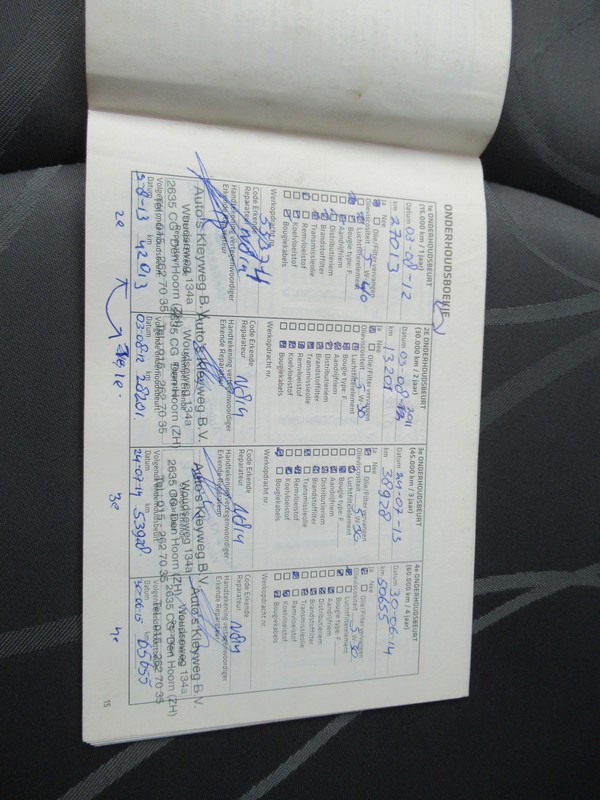 ONDERHOUDSBOEKJE
1e ONDERHOUDSBEURT
(15.000 km / 1 jaar)
Datum 03-08-12
km 27013
Ja Nee
Olie/Filter vervangen
Oliesoort/visc. 5 W 40
Luchtfilterelement
Bougie type: F
Aandrijfriem
Distributieriem
Brandstoffilter
Transmissieolie
Remvloeistof
Koelvloeistof
Bougiekabels
Werkopdracht nr.
Code Erkende
Reparateur
Handtekening vertegenwoordiger
Erkende Reparateur
Auto's Kleyweg B.V.
Woudseweg 134a
2635 CG Den Hoorn (ZH)
Tel. 015 - 262 70 35
Datum km
3-8-13 42013
2e
2E ONDERHOUDSBEURT
(30.000 km / 2 jaar)
Datum 03-08-2011
km 13201
Ja Nee
Olie/Filter vervangen
Oliesoort/visc. 5 W 30
Luchtfilterelement
Bougie type: F
Aandrijfriem
Distributieriem
Brandstoffilter
Transmissieolie
Remvloeistof
Koelvloeistof
Bougiekabels
Werkopdracht nr.
Code Erkende
Reparateur N814
Handtekening vertegenwoordiger
Erkende Reparateur
Auto's Kleyweg B.V.
Woudseweg 134a
2635 CG Den Hoorn (ZH)
Tel. 015 - 262 70 35
Datum km
03-08-12 28201.
1e.
3e ONDERHOUDSBEURT
(45.000 km / 3 jaar)
Datum 24-07-13
km 38928
Ja Nee
Olie/Filter vervangen
Oliesoort/visc. 5 W 30
Luchtfilterelement
Bougie type: F
Aandrijfriem
Distributieriem
Brandstoffilter
Transmissieolie
Remvloeistof
Koelvloeistof
Bougiekabels
Werkopdracht nr.
Code Erkende
Reparateur N814
Handtekening vertegenwoordiger
Erkende Reparateur
Auto's Kleyweg B.V.
Woudseweg 134a
2635 CG Den Hoorn (ZH)
Tel. 015 - 262 70 35
Datum km
24-07-14 53928
3e
4e ONDERHOUDSBEURT
(60.000 km / 4 jaar)
Datum 30-06-14
km 50655
Ja Nee
Olie/Filter vervangen
Oliesoort/visc. 5 W 30
Luchtfilterelement
Bougie type: F
Aandrijfriem
Distributieriem
Brandstoffilter
Transmissieolie
Remvloeistof
Koelvloeistof
Bougiekabels
Werkopdracht nr.
Code Erkende
Reparateur
Handtekening vertegenwoordiger
Erkende Reparateur
Auto's Kleyweg B.V.
Woudseweg 134a
2635 CG Den Hoorn (ZH)
Tel. 015 - 262 70 35
Datum km
30-06-15 65655
4e
15